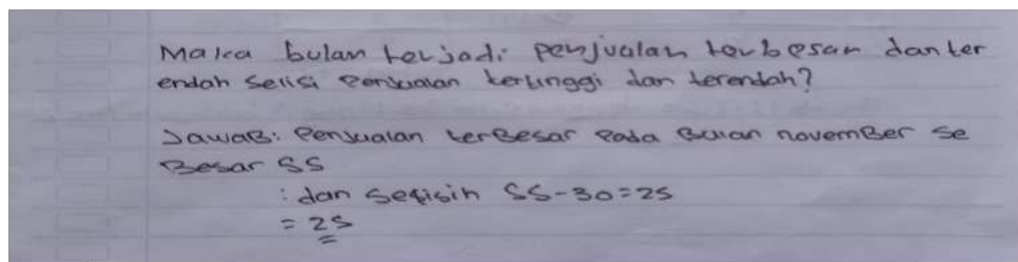 Maka bulan terjadi penjualan terbesar dan ter
endah selisi Penjualan tertinggi dan terendah?
Jawab: Penjualan terBesar Pada Bulan november se
Besar 55
: dan selisih 55-30=25
= 25